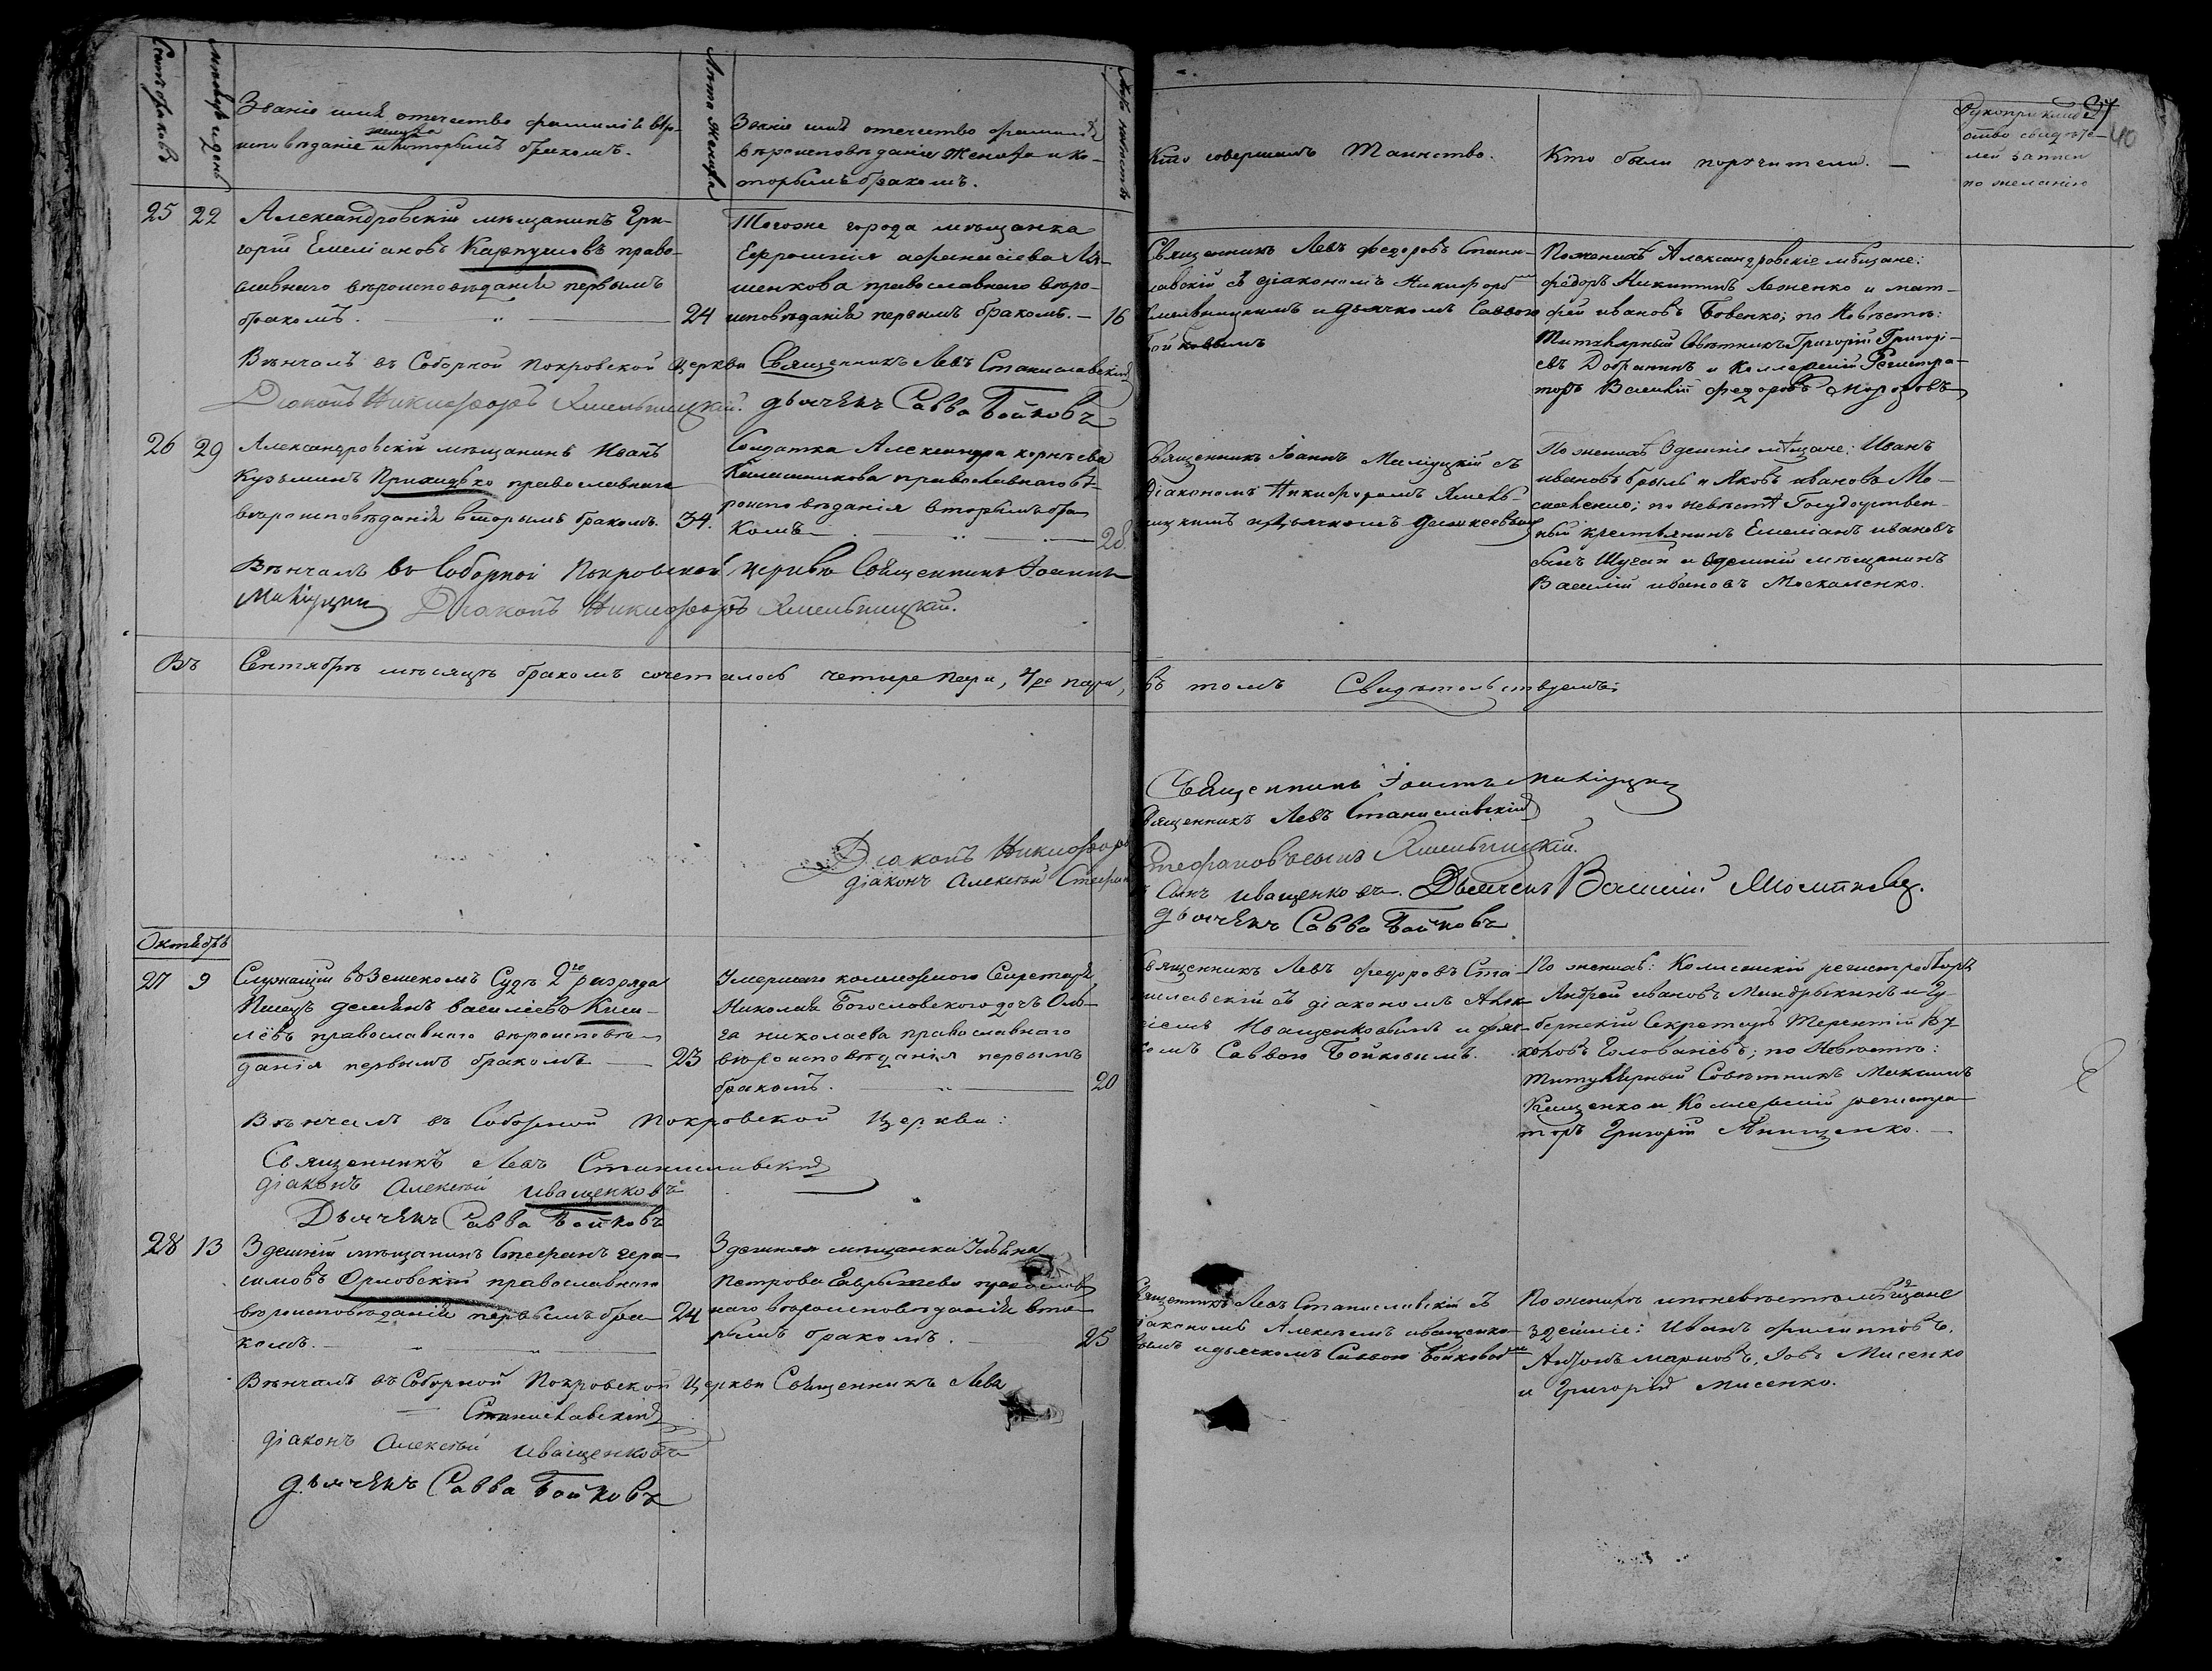 Счетъ браковъ
Мѣсяцъ и день
Званіе имя, отечество фамилія вѣро-
исповѣданіе жениха и которымъ бракомъ.
Лѣта жениха
Званіе имя отечество фамилія
вѣроисповѣданіе женеха и ко-
торымъ бракомъ.
Лѣта невѣстъ
Кто совершалъ Таинство.
Кто были поручители. —
Рукоприклад
ство свидѣте-
лей записи
по желанію
37
40
25 22
Александровскій мѣщанинъ Гри-
горій Емеліановъ Карпушовъ право-
славнаго вѣроисповѣданія первымъ
бракомъ. 24
Тогоже города мѣщанка
Ефросинія Афанасіева Ля-
шенкова православнаго вѣро-
исповѣданія первымъ бракомъ. — 16
Священникъ Левъ Федоровъ Стани-
лавскій съ діакономъ Никифоромъ
Хмельницкимъ и дьячкомъ Саввою
Бойковымъ
По женихѣ Александровскіе мѣщане:
Федоръ Никитинъ Леженко и Мат-
фей Ивановъ Бовенко; по Невѣстѣ:
Титулярный Совѣтникъ Григорій Григорі-
евъ Добранинъ и Коллежскій Регистра-
торъ Василій Федоровъ Морозовъ
Вѣнчалъ въ Соборной Покровской Церкви Священникъ Левъ Станиславскій
Діаконъ Никифоръ Хмельницкій. Дьячекъ Савва Бойковъ
26 29
Александровскій мѣщанинъ Иванъ
Кузьминъ Приходько православнаго
вѣроисповѣданія вторымъ бракомъ. 34.
Солдатка Александра Корнѣева
Калашникова православнаго вѣ-
роисповѣданія вторымъ бра
комъ 28.
Священникъ Іоаннъ Малиуцкій съ
Діакономъ Никифоромъ Хмель-
ницкимъ и Дьячкомъ
По женихѣ Здешніе мѣщане: Иванъ
Ивановъ Брыль и Яковъ Ивановъ Мо-
скаленко; по невѣстѣ Государствен-
ный крестьянинъ Емеліанъ Ивановъ
сынъ Шугай и Здешній мѣщанинъ
Василій Ивановъ Москаленко.
Вѣнчалъ въ Соборной Покровской церквѣ Священникъ Іоаннъ
Малиуцкій Діаконъ Никифоръ Хмельницкій.
Въ Сентябрѣ мѣсяцѣ бракомъ сочеталось четыре пары, 4ре пары, въ томъ Свидѣтельствуемъ:
Священникъ Іоаннъ Малиуцкій
Священникъ Левъ Станиславскій
Діаконъ Никифоръ Стефановъ сынъ Хмельницкій.
діаконъ Алексѣй Стефановъ Сынъ Иващенковъ. Дьячекъ Василій
дьячекъ Савва Бойковъ
Октябрь
27 9
Служащій въ Земскомъ Судѣ 2го разряда
Писецъ Демьянъ Василіевъ Кисе-
лёвъ православнаго вѣроисповѣ-
данія первымъ бракомъ — 23
Умершаго коллежского Секретаря
Николая Богословского дочь Оль-
га Николаева православнаго
вѣроисповѣданія первымъ
бракомъ. 20
Священникъ Левъ Федоровъ Ста-
ниславскій съ діакономъ Алек-
сіемъ Иващенковымъ и дьяч-
комъ Саввою Бойковымъ.
По женихѣ: Колежскій регистраторъ
Андрей Ивановъ Мандрыкинъ и Гу-
бернскій Секретарь Терентій
Головачевъ; по Невѣстѣ:
Титулярный Совѣтникъ Максимъ
Кащенко и Коллежскій регистра-
торъ Григорій Онищенко. —
Вѣнчалъ въ Соборной Покровской Церкви:
Священникъ Левъ Станиславскій
діаконъ Алексѣй Иващенковъ
Дьячекъ Савва Бойковъ
28 13
Здешній мѣщанинъ Стефанъ Гера-
симовъ Орловскій православнаго
вѣроисповѣданія первымъ бра- 24
комъ.
Здешняя мѣщанка Ульяна
Петрова православ
наго вѣроисповѣданія вто-
рымъ бракомъ. 25
Священникъ Левъ Станиславскій съ
діакономъ Алексѣемъ Иващенко-
вымъ и дьячкомъ Саввою Бойковымъ
По женихѣ и по невѣстѣ мѣщане
здешніе: Иванъ Филипповъ,
Антонъ Марковъ, Іовъ Мисенко
и Григорій Мисенко.
Вѣнчалъ въ Соборной Покровской Церкви Священникъ Левъ
Станиславскій
діаконъ Алексѣй Иващенковъ
дьячекъ Савва Бойковъ